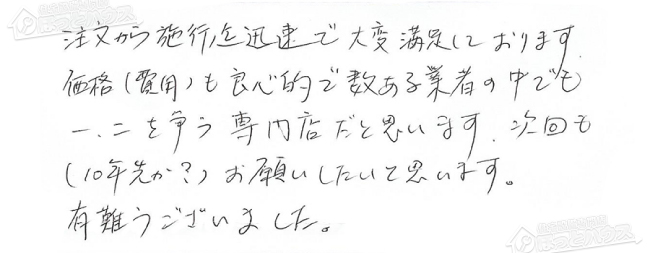 注文から施行迄迅速で大変満足しております
価格(費用)も良心的で数ある業者の中でも
一、二を争う専門店だと思います。次回も
(10年先か?)お願いしたいと思います。
有難うございました。